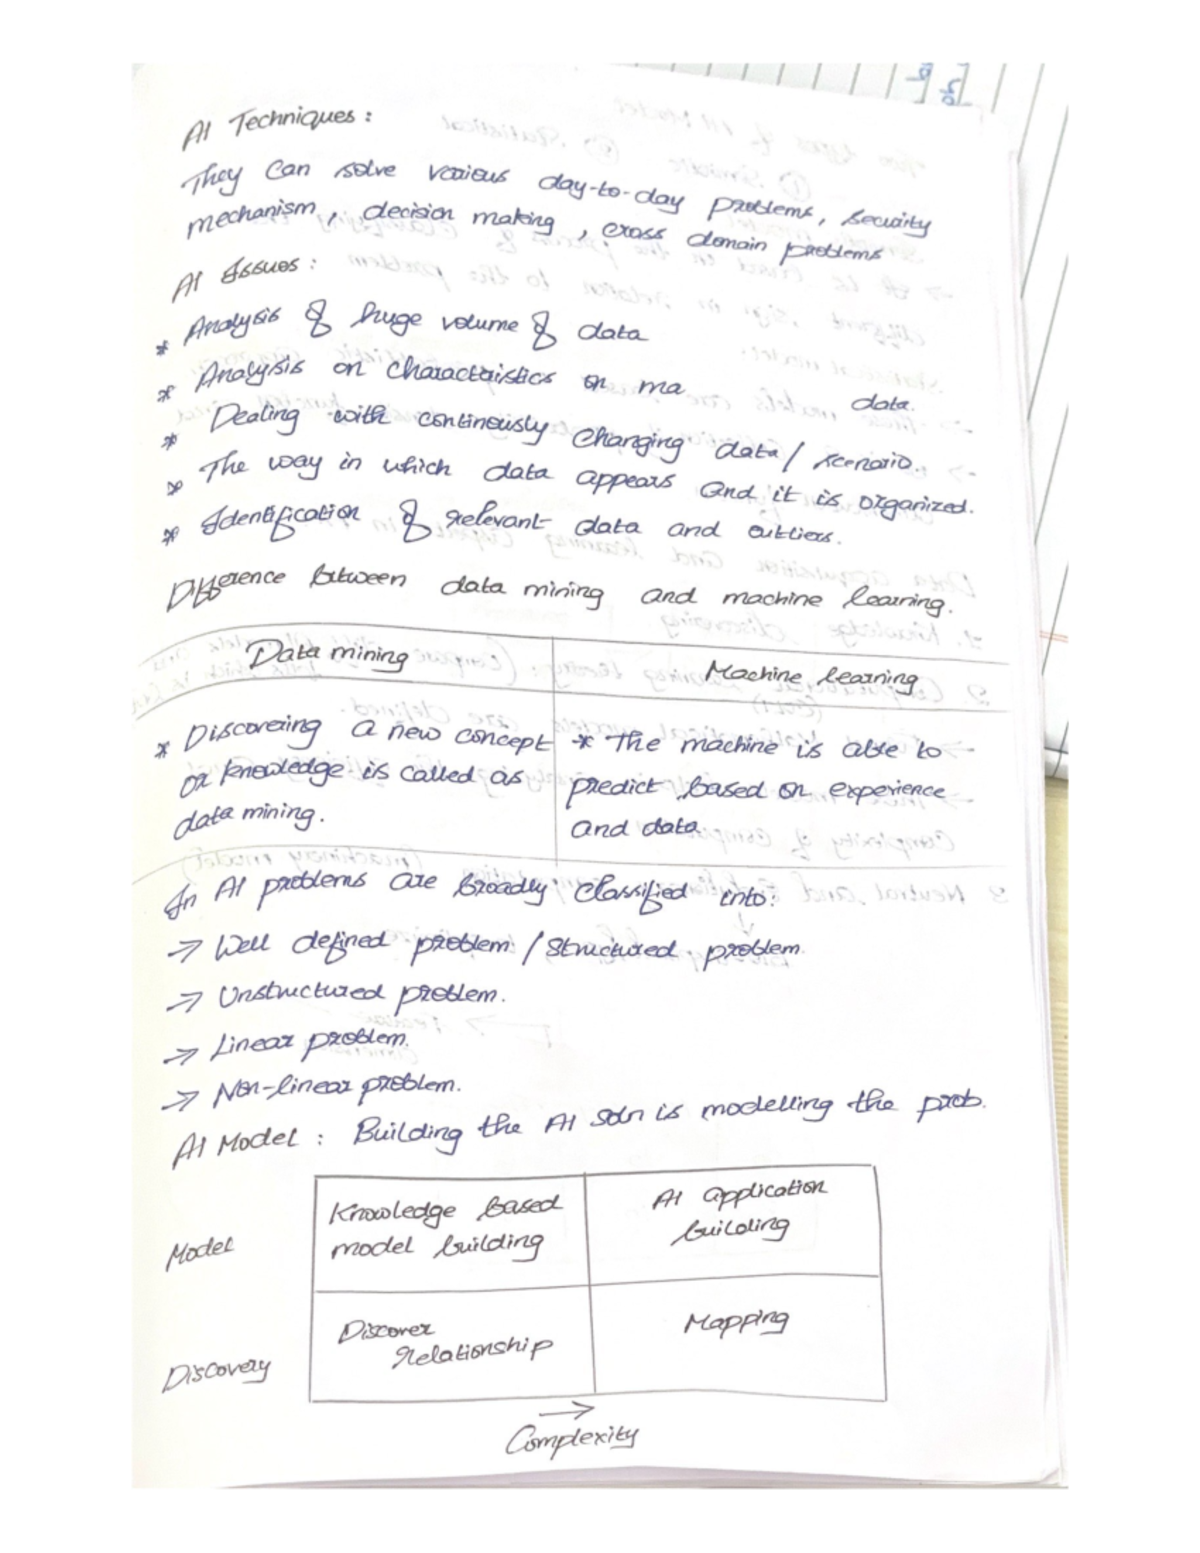 AI Techniques :
They Can solve various day-to-day problems, security
mechanism, decision making, cross domain problems
AI Issues :
* Analysis of huge volume of data
* Analysis on characteristics on ma data.
* Dealing with continously changing data / scenario.
* The way in which data appears and it is organized.
* Identification of relevant data and outliers.
Difference between data mining and machine learning.
Data mining
Machine learning
* Discovering a new concept
or knowledge is called as
data mining.
* The machine is able to
predict based on experience
and data
In AI problems are broadly classified into:
→ Well defined problem / Structured problem.
→ Unstructured problem.
→ Linear problem.
→ Non-linear problem.
AI Model : Building the AI soln is modelling the prob.
Model
Knowledge based
model building
AI application
building
Discovery
Discover
Relationship
Mapping
→
Complexity